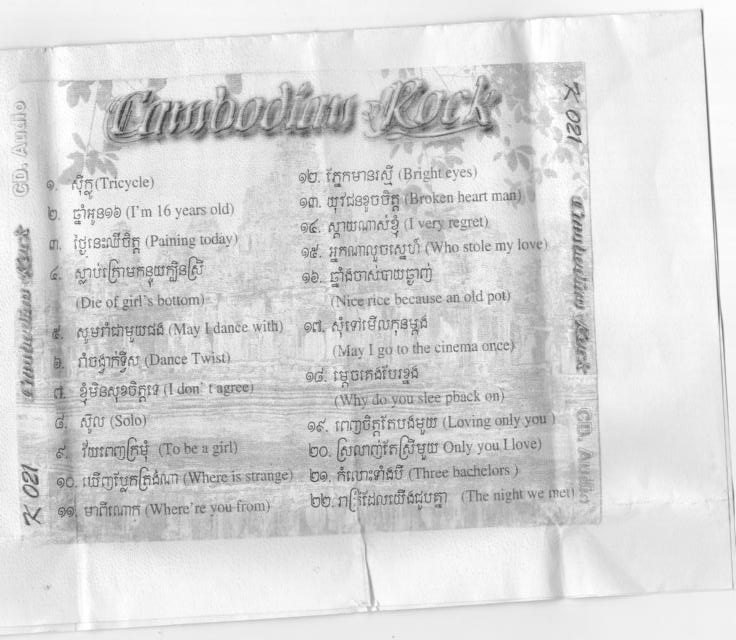 Cambodian Rock
CD. Audio
Cambodian Rock
K 021
K 021
Cambodian Rock
CD. Audio
១. ស៊ីក្លូ (Tricycle)
២. ឆ្នាំអូន១៦ (I'm 16 years old)
៣. ថ្ងៃនេះឈឺចិត្ត (Paining today)
៤. ស្លាប់ក្រោមកន្ទុយក្បិនស្រី
(Die of girl's bottom)
៥. សូមរាំជាមួយផង (May I dance with)
៦. រាំចង្វាក់ទ្វីស (Dance Twist)
៧. ខ្ញុំមិនសុខចិត្តទេ (I don' t agree)
៨. ស៊ូល (Solo)
៩. វ័យពេញក្រមុំ (To be a girl)
១០. ឃើញប្លែកត្រង់ណា (Where is strange)
១១. មកពីណោក (Where're you from)
១២. ភ្នែកមានរស្មី (Bright eyes)
១៣. យុវជនខូចចិត្ត (Broken heart man)
១៤. ស្តាយណាស់ខ្ញុំ (I very regret)
១៥. អ្នកណាលួចស្នេហ៍ (Who stole my love)
១៦. ឆ្នាំងចាស់បាយឆ្ងាញ់
(Nice rice because an old pot)
១៧. សុំទៅមើលកុនម្តង
(May I go to the cinema once)
១៨. ម្តេចគេងបែរខ្នង
(Why do you slee pback on)
១៩. ពេញចិត្តតែបងមួយ (Loving only you )
២០. ស្រលាញ់តែស្រីមួយ Only you I love)
២១. កំលោះទាំងបី (Three bachelors )
២២. រាត្រីដែលយើងជួបគ្នា (The night we met)